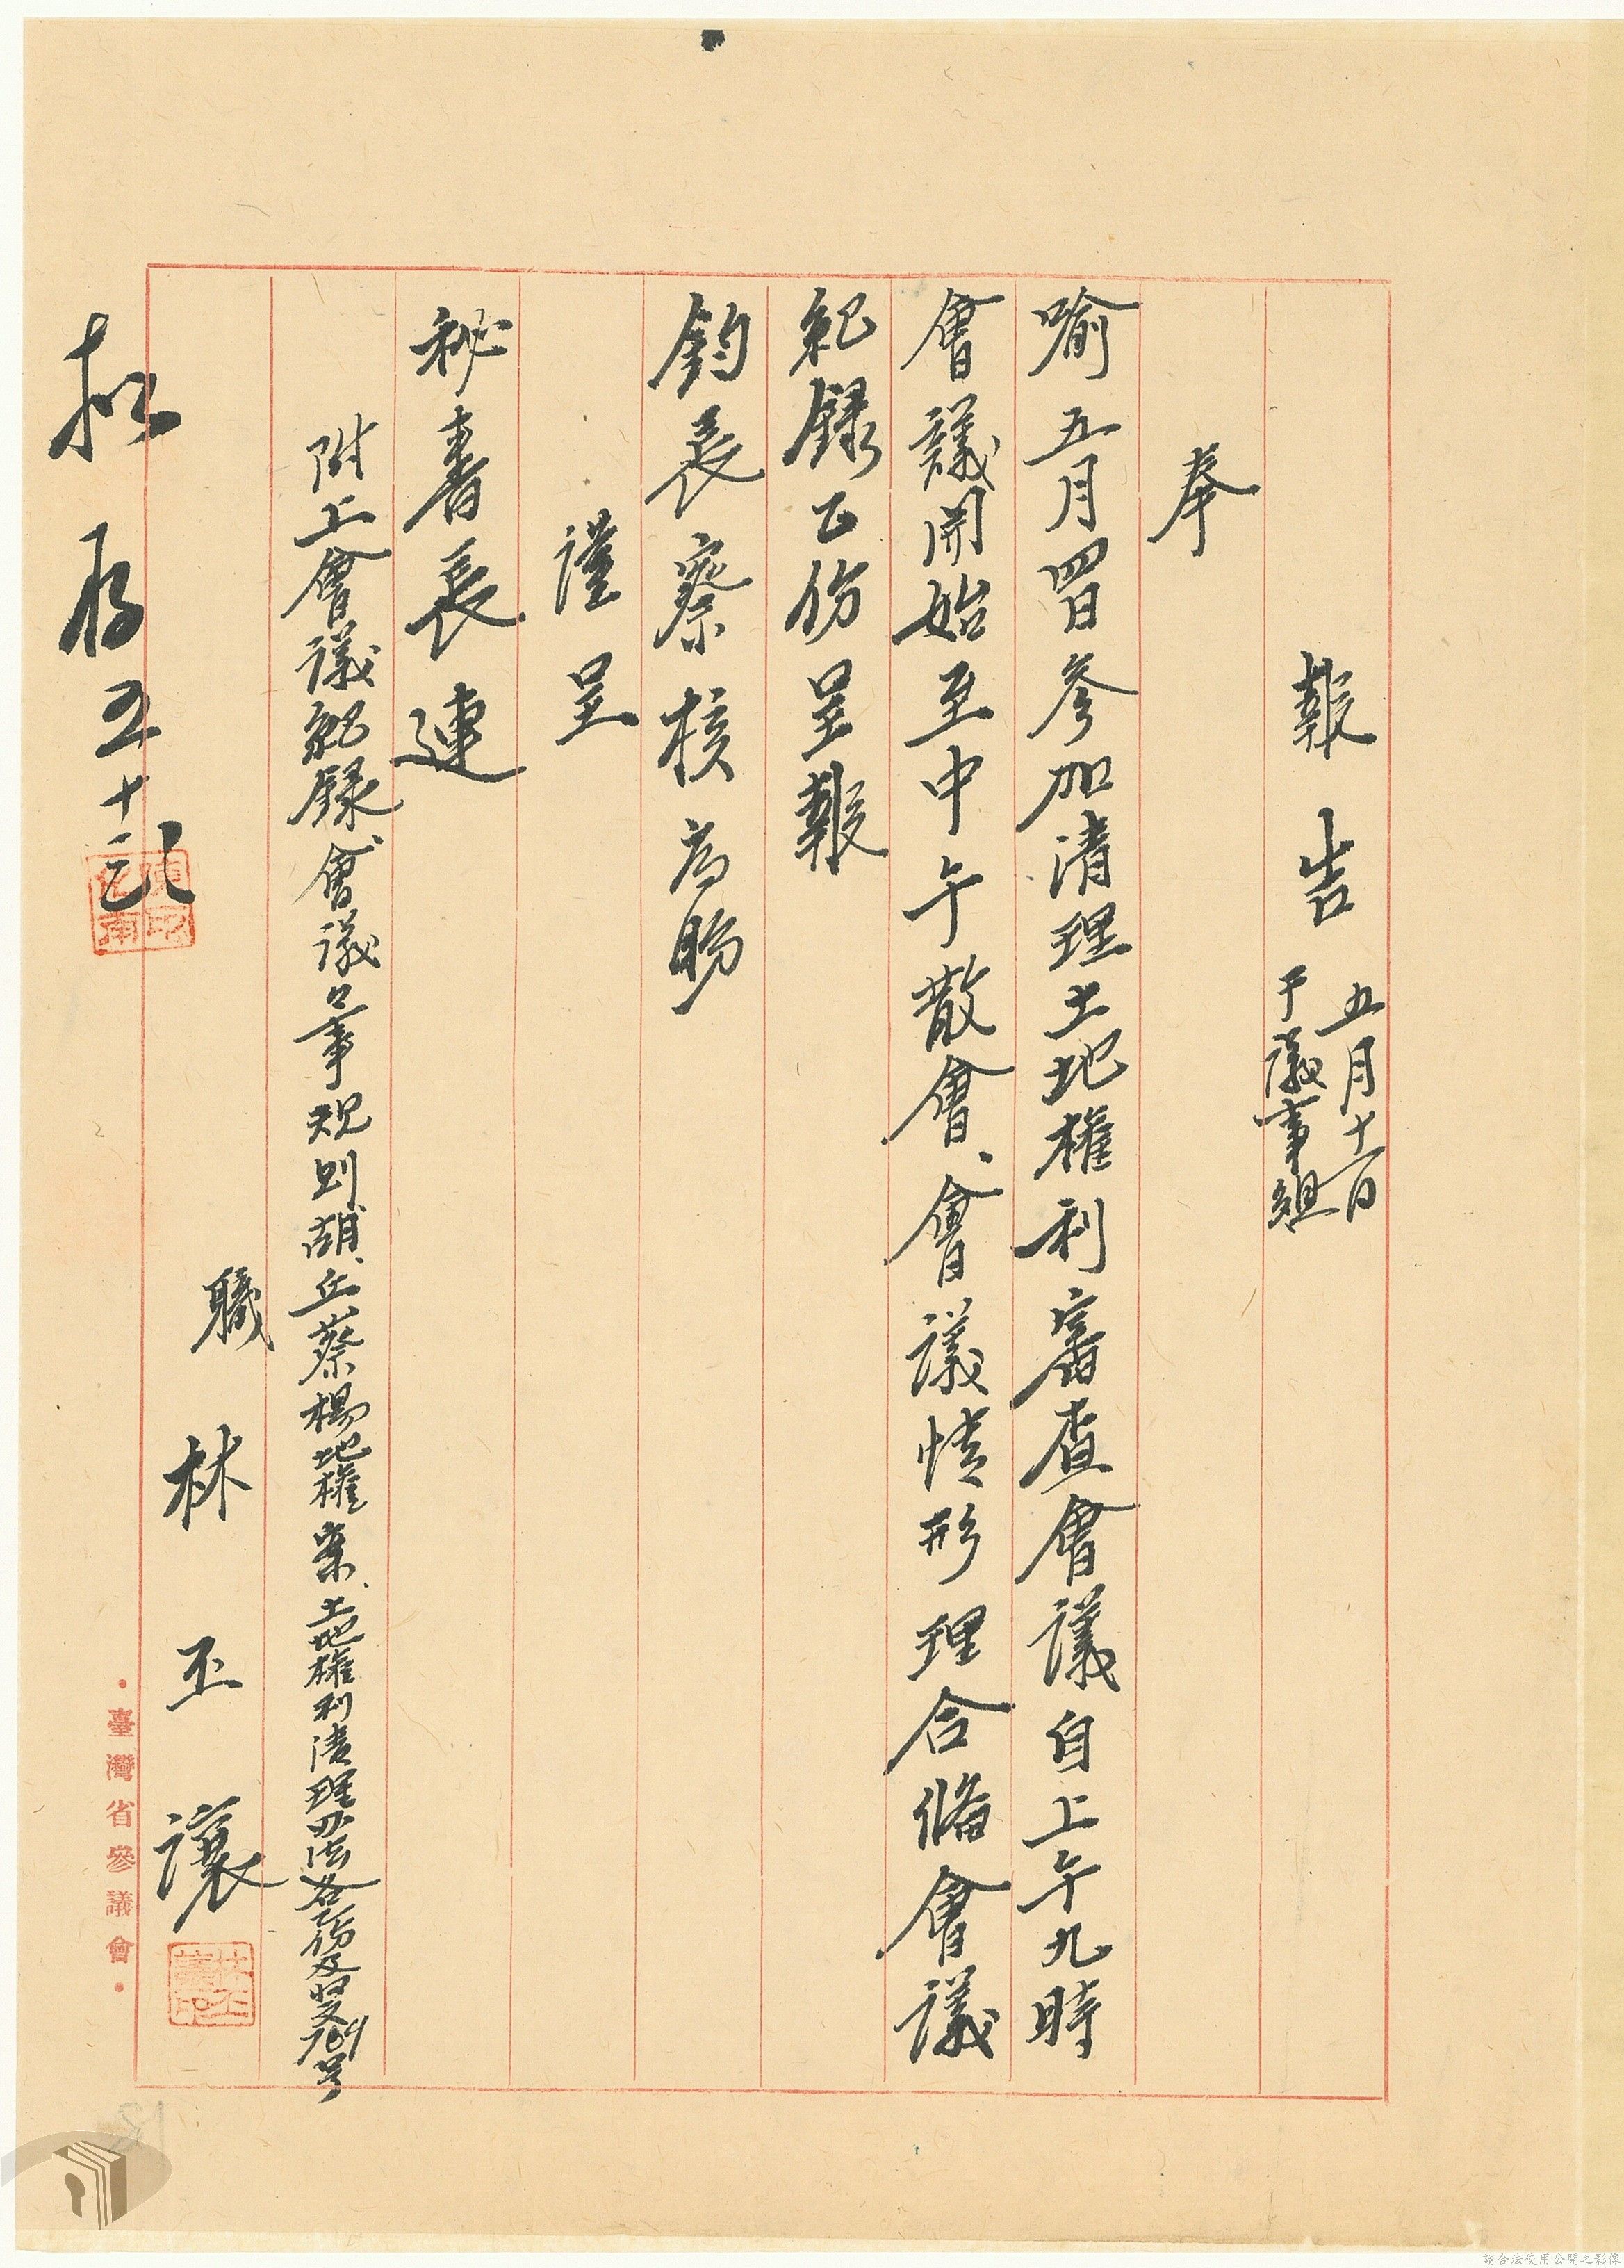 報告
五月十一日
于議事組
奉
喻五月四日參加清理土地權利審查會議自上午九時
會議開始至中午散會、會議情形理合備會議
紀錄乙份呈報
鈞長察核為盼
謹呈
秘書長連
附上會議紀錄、會議議事規則、胡、丘蔡楊地權案、土地權利清理办法各乙份及收文769号
職 林玉讓
擬存 五、十二
•臺灣省參議會•
請合法使用公開之影像